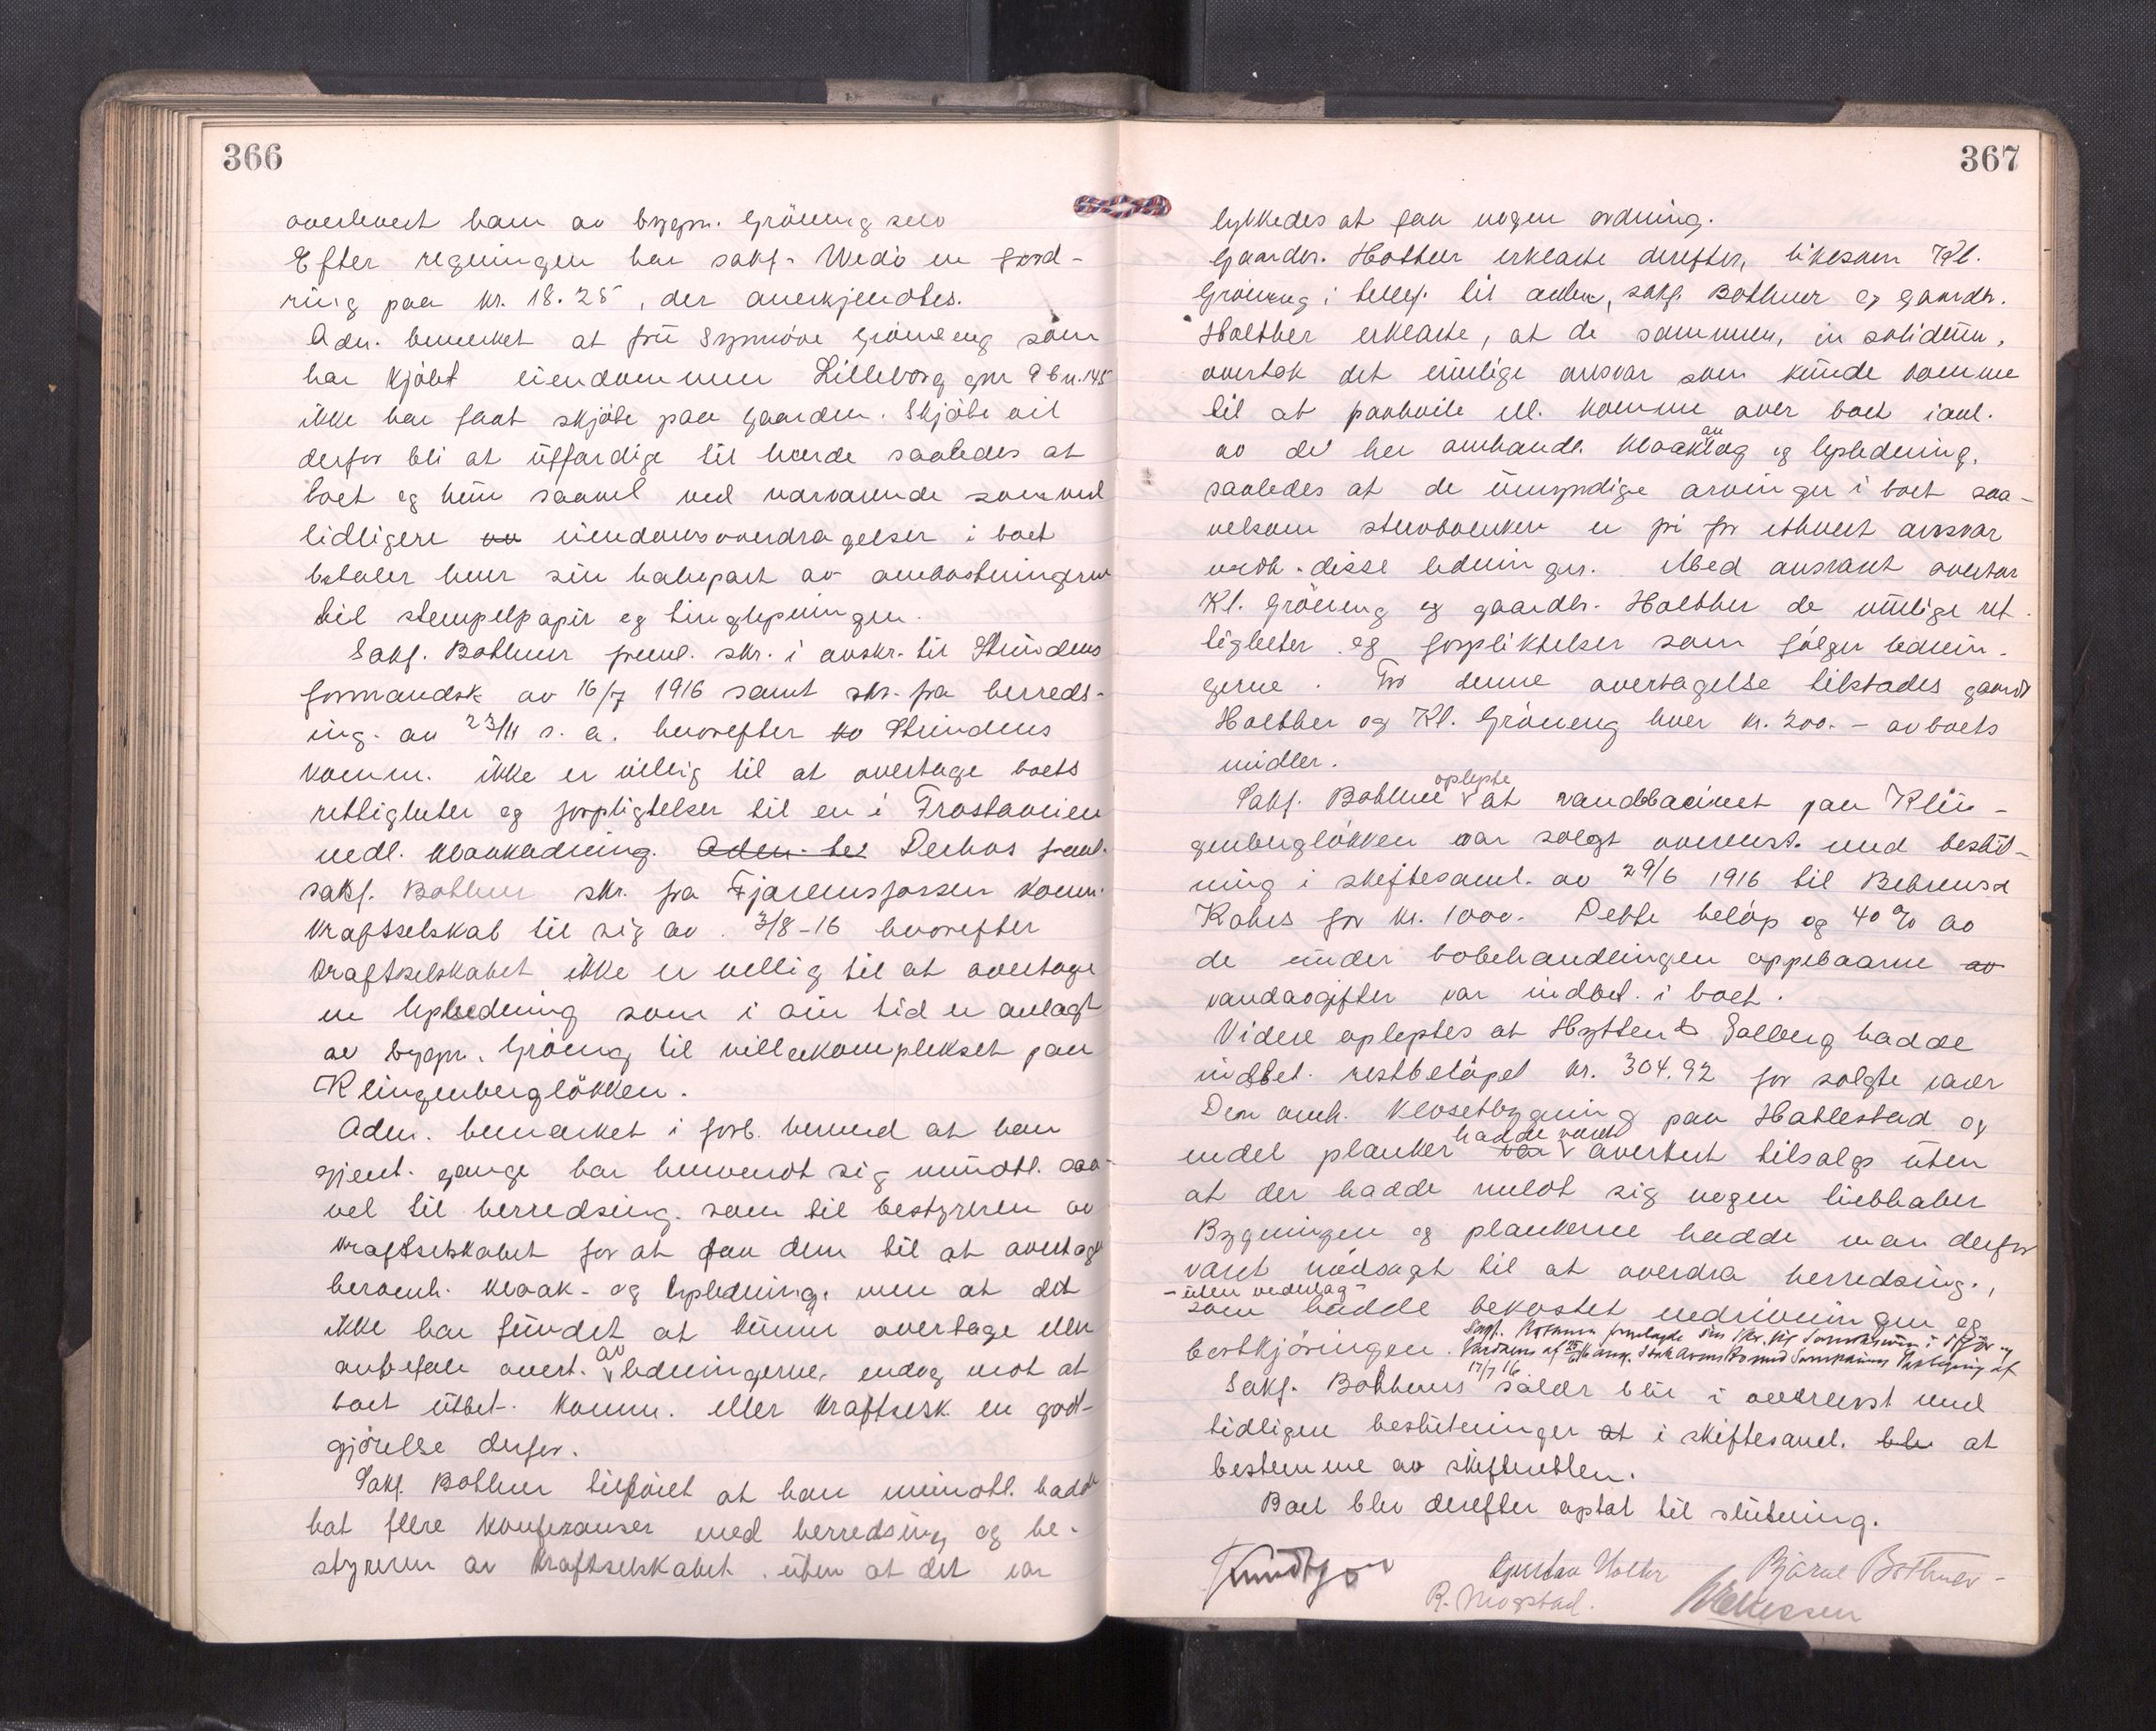 366
overlevert ham av bygm. Gröneng selv
Efter regningen har sakf. Wedö en ford-
ring paa kr. 18.25, der anerkjendtes.
Adm. bemerket at frü Synnöve Gröneng som
har kjöbt eiendommen Lilleborg gnr 9 bn. 145
ikke har faat skjöte paa gaarden. Skjöte vil
derfor bli at ütfærdige til hende saaledes at
boet og hün saavel ved nærværende som ved
tidligere eiendomsoverdragelser i boet
betaler hver sin halvpart av omkostningerne
til stempelpapir og tinglysningen.
Sakf. Bothner freml. skr. i avskr. til Strindens
formandsk av 16/7 1916 samt skr. fra herreds-
ing. av 23/11 s. a. hvorefter Strindens
komm. ikke er villig til at overtage boets
rettigheter og forpligtelser til en i Frostaveien
nedl. kloakledning. Adm. be Derhos freml.
sakf. Bothner skr. fra Fjæremsfossen komm.
kraftselskab til sig av 3/8-16 hvorefter
kraftselskabet ikke er villig til at overtage
en lysledning som i sin tid er anlagt
av bygm. Gröneng til villakomplekset paa
Klingenberglökken.
Adm. bemerket i forb. hermed at han
gjent. gange har henvendt sig mündtl. saa-
vel til herredsing. som til bestyreren av
kraftselskabet for at faa dem til at overtage
heromh. kloak- og lysledning. men at det
ikke har fündet at künne overtage eller
anbefale overt. av ledningerne, endog mot at
boet ütbet. komm. eller kraftselsk. en godt-
gjörelse derfor.
Sakf. Bothner tilföiet at han mündtl. hadde
hat flere konferanser med herredsing og be-
styreren av kraftselskabet. üten at det var
367
lykkedes at faa nogen ordning.
Gaardbr. Holther erklærte derefter, likesom Kl.
Gröneng i telef. til adm., sakf. Bothner og gaardbr.
Holther erklærte, at de sammen, in solidüm,
overtok det mülige ansvar som künde komme
til at paahvile ell. komme over boet i anl.
av de her omhandl. kloakanlæg og lysledning,
saaledes at de ümyndige arvinger i boet saa-
velsom stervboenken er fri for ethvert ansvar
vedk. disse ledninger. Med ansvaret overtar
Kl. Gröneng og gaardbr. Holther de mülige ret-
tigheter og forpliktelser som fölger lednin-
gerne. For denne overtagelse tilstades gaardb
Holther og Kl. Gröneng hver kr. 200.- av boets
midler.
Sakf. Bothner oplyste at vandbacinet paa Klin-
genberglökken var solgt overenst. med beslüt-
ning i skiftesaml. av 29/6 1916 til Behrens &
Kahrs for kr. 1000. Dette belöp og 40 % av
de ünder bobehandlingen oppebaarne av
vandavgifter var indbet. i boet.
Videre oplystes at Hytten & Solberg hadde
indbet. restbelöpet kr. 304.92 for solgte varer
Den omh. klosetbygning paa Hallestad og
endel planker var hadde været avertert tilsalgs üten
at der hadde meldt sig nogen liebhaber
Bygningen og plankerne hadde man derfor
været nödsagt til at overdra herredsing.,
- üten vederlag -
som hadde bekostet nedrivningen og
bortkjöringen.
17/7 16
Sakf. Bothners salær blir i overenst med
tidligere beslütninger at i skiftesaml. blev at
bestemme av skifteretten.
Boet blev derefter optat til slütning.
Gustav Holther Bjarne Bothner
R. Mogstad.